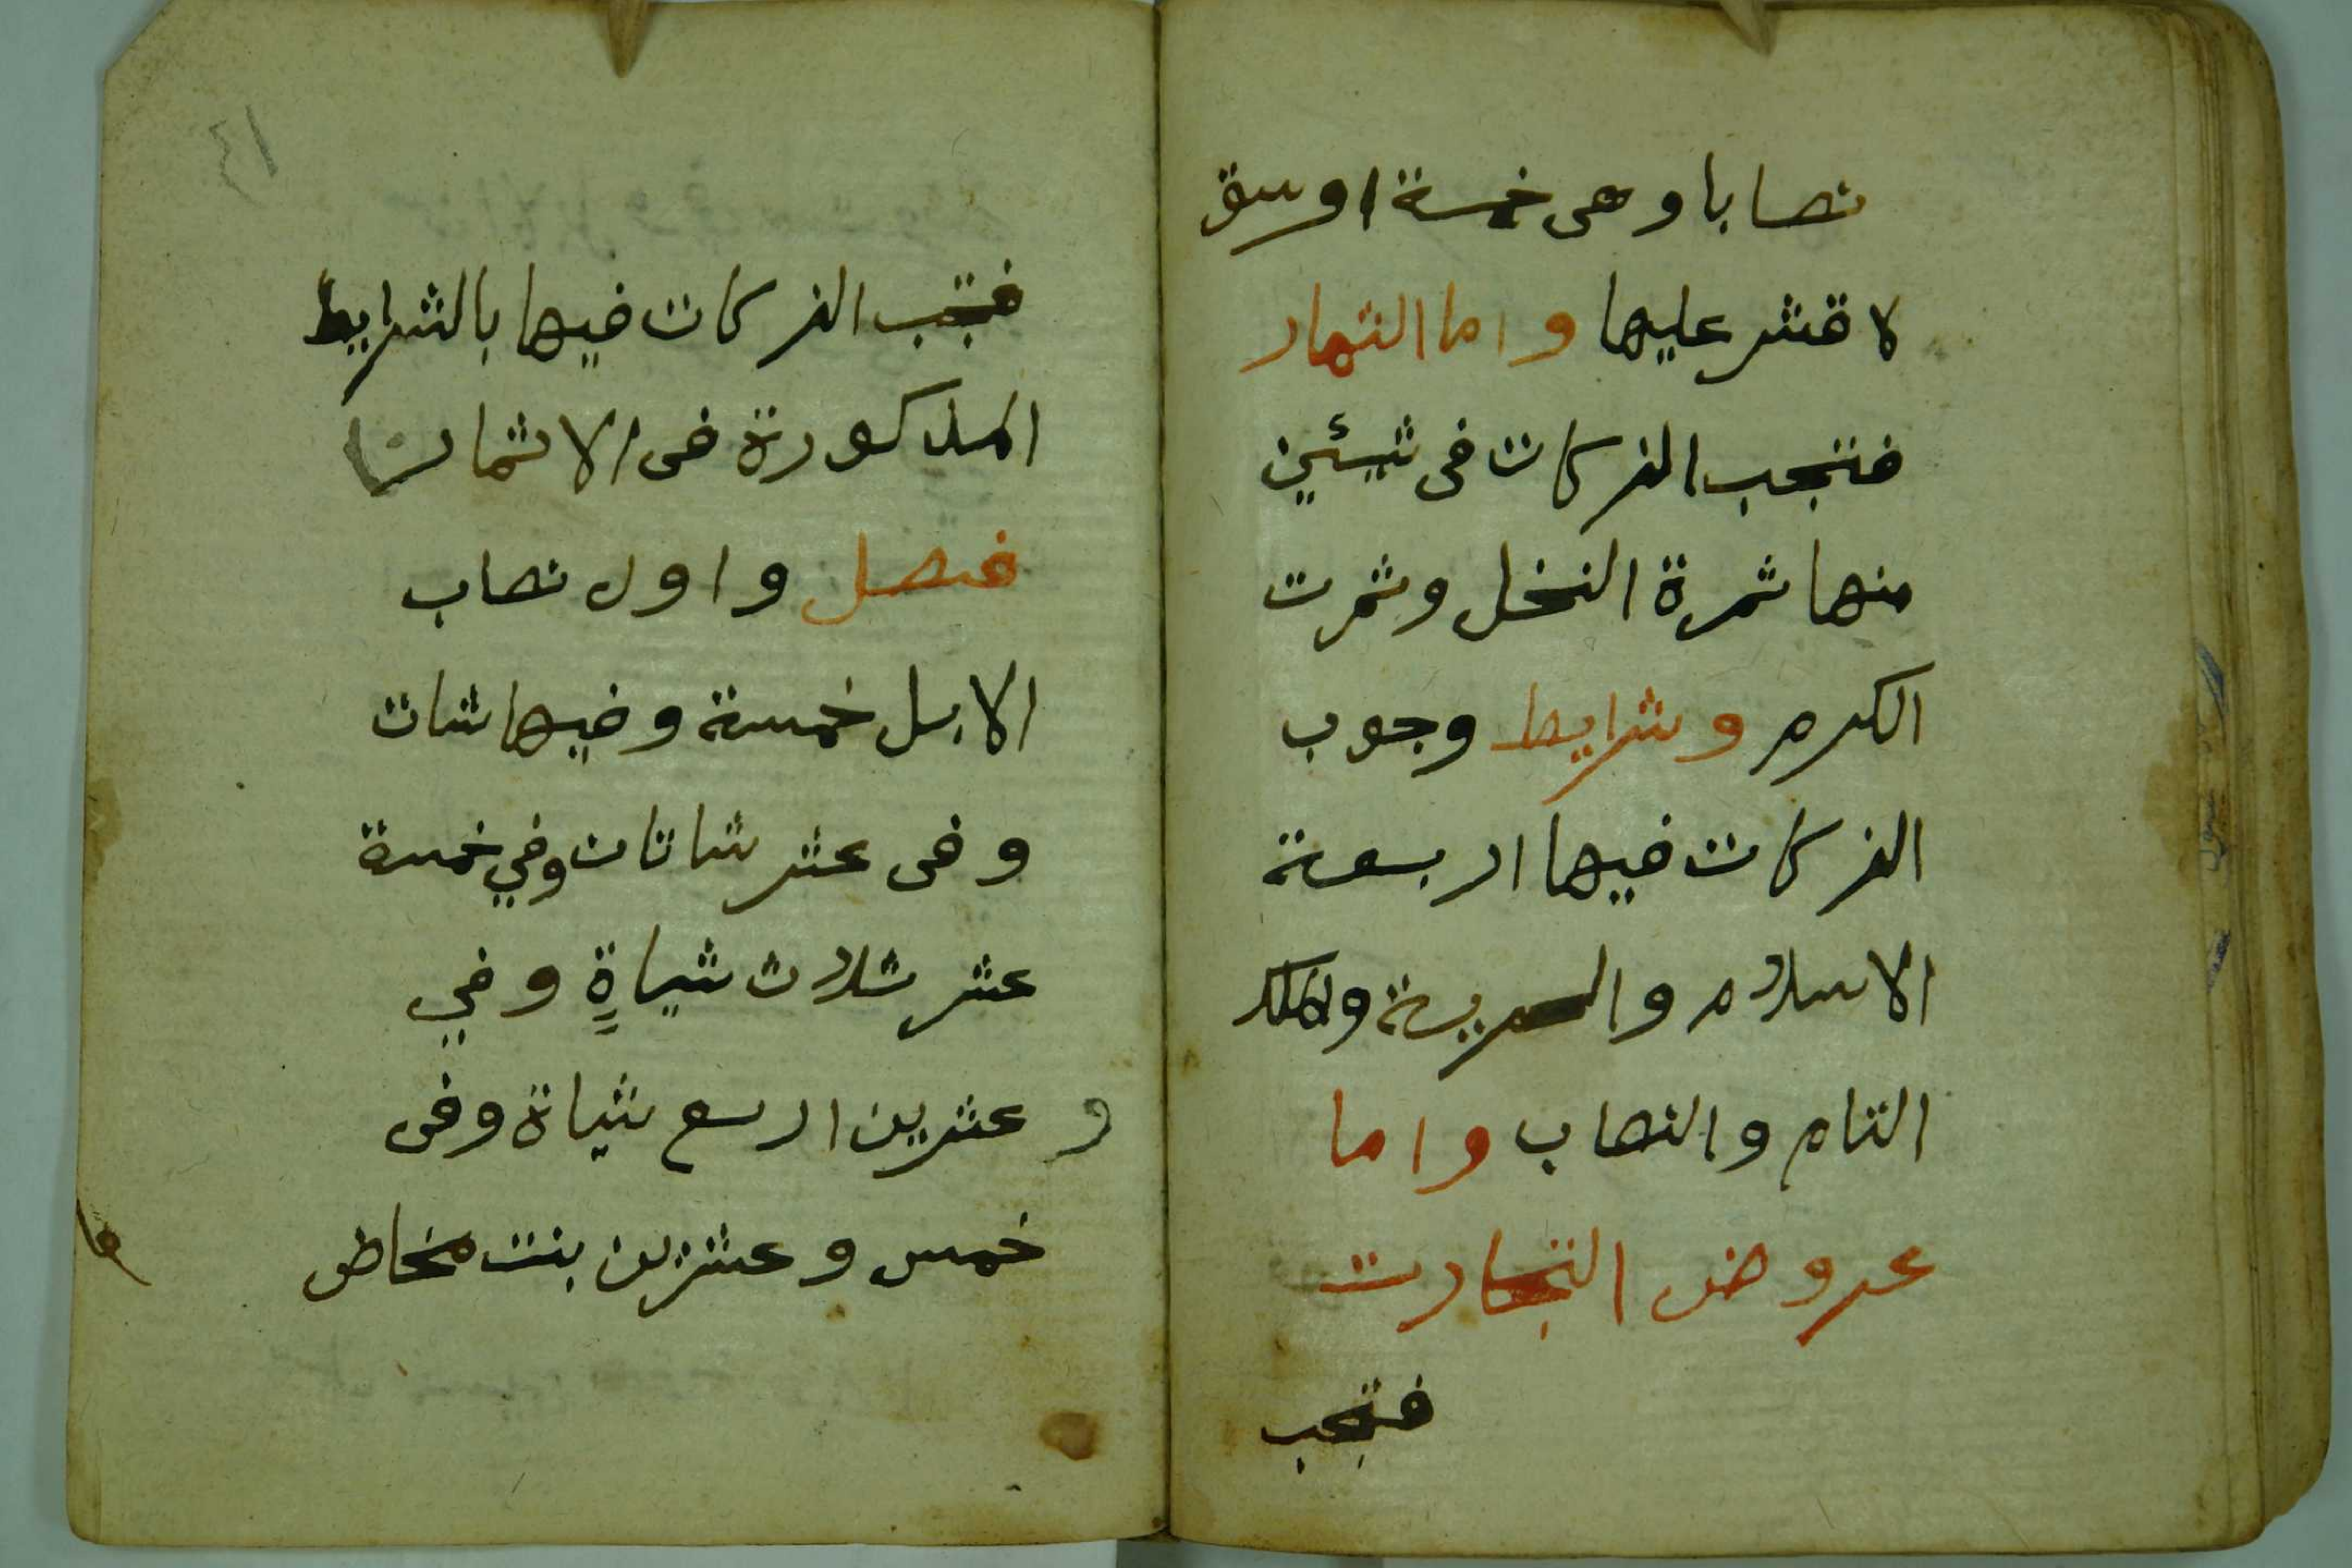 نصابا وهى خمسة اوسق
لا قشر عليها واما الثمار
فتجب الزكات فى شيئين
منها ثمرة النخل وثمرت
الكرم وشرايط وجوب
الزكات فيها اربعة
الاسلام والحرية والملك
التام والنصاب واما
عروض التجارت
فتجب
١٣
فتجب الزكات فيها بالشرايط
المذكورة فى الاثمان
فصل واول نصاب
الابل خمسة وفيها شات
وفى عشر شاتان وفي خمسة
عشر ثلاث شياةٍ وفي
و عشرين اربع شياة وفى
خمس وعشرين بنت مخاض